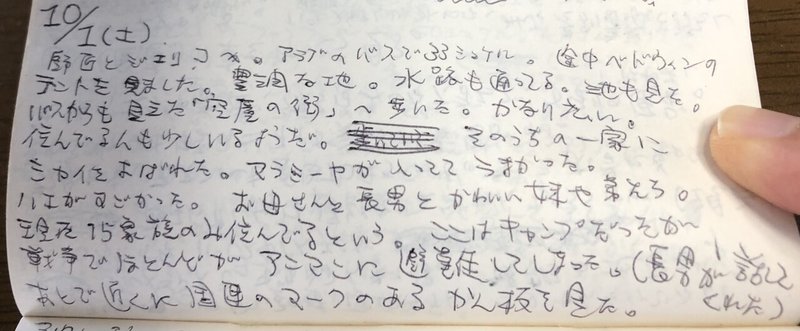 10/1(土)
師匠とジェリコへ。アラブのバスで33シケル。途中ベドウィンの
テントを見ました。豊潤な地。水路も通ってる。池も見た。
バスからも見えた「空屋の街」へ歩いた。かなり広い。
住んでる人も少しいるようだ。そのうちの一家に
ミカイをよばれた。マラミーヤが入っててうまかった。
ハエがすごかった。お母さんと長男とかわいい妹や弟たち。
現在15家族のみ住んでるという。ここはキャンプだったが
戦争でほとんどがアンマンに避難してしまった。(長男が話して
くれた)
あとで近くに国連のマークのあるかん板を見た。